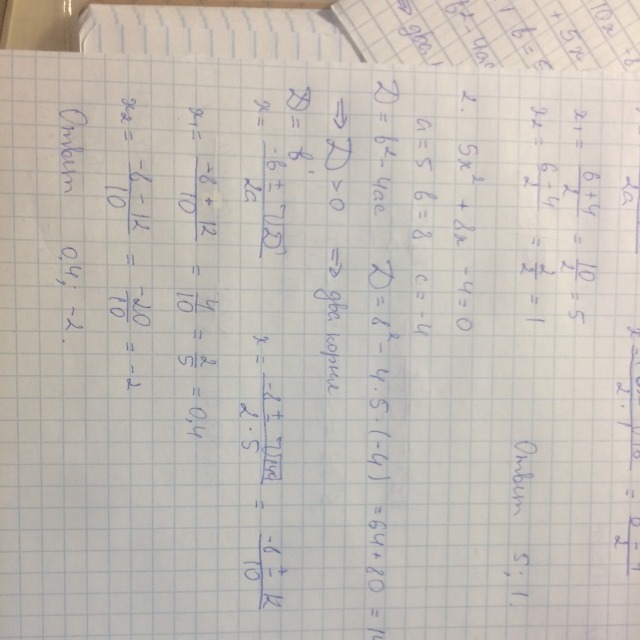 x₁ = (6+4)/2 = 10/2 = 5
x₂ = (6-4)/2 = 2/2 = 1
Ответ 5; 1.
5x² + 8x - 4 = 0
a = 5 b = 8 c = -4
D = b² - 4ac D = 8² - 4·5(-4) = 64 + 80 =
⇒ D > 0 ⇒ два корня
x = (-b ± √D)/2a x = (-8 ± √144)/2·5 = (-8 ± 12)/10
x₁ = (-8 + 12)/10 = 4/10 = 2/5 = 0,4
x₂ = (-8 - 12)/10 = -20/10 = -2
Ответ 0,4; -2.